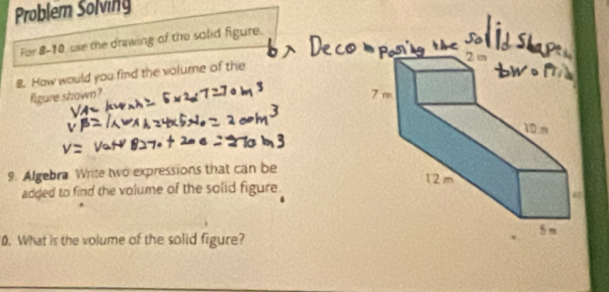 Problem Solving
For 8-10, use the drawing of the solid figure.
by Decomposing the solid shape
two
8. How would you find the volume of the
figure shown?
VA= lxwxh= 5x2x7=70m3
VB=lxwxh=4x5x10=200m3
V= VA+VB=70+200=270m3
9. Algebra Write two expressions that can be
added to find the volume of the solid figure.
0. What is the volume of the solid figure?
2 m
7 m
10 m
12 m
5 m